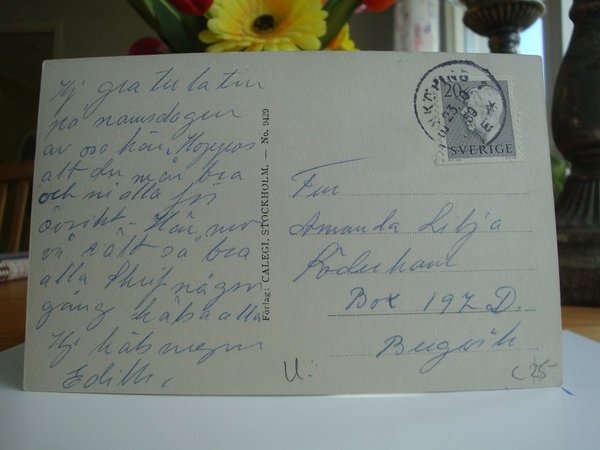 Hj gratulation
på namsdagen
av oss här, Hoppas
alt du mår bra
och ni alla för
övrikt. Här mor
vi alt så bra
alla Skriv någon
gång hälsa alla
Hj häls
Edith,
Förlag: CALEGI, STOCKHOLM. — No. 9429
20
SVERIGE
Fru
Amanda Lilja
Söderhamn
Box 197 D.
Bergvik
U:
C 25-